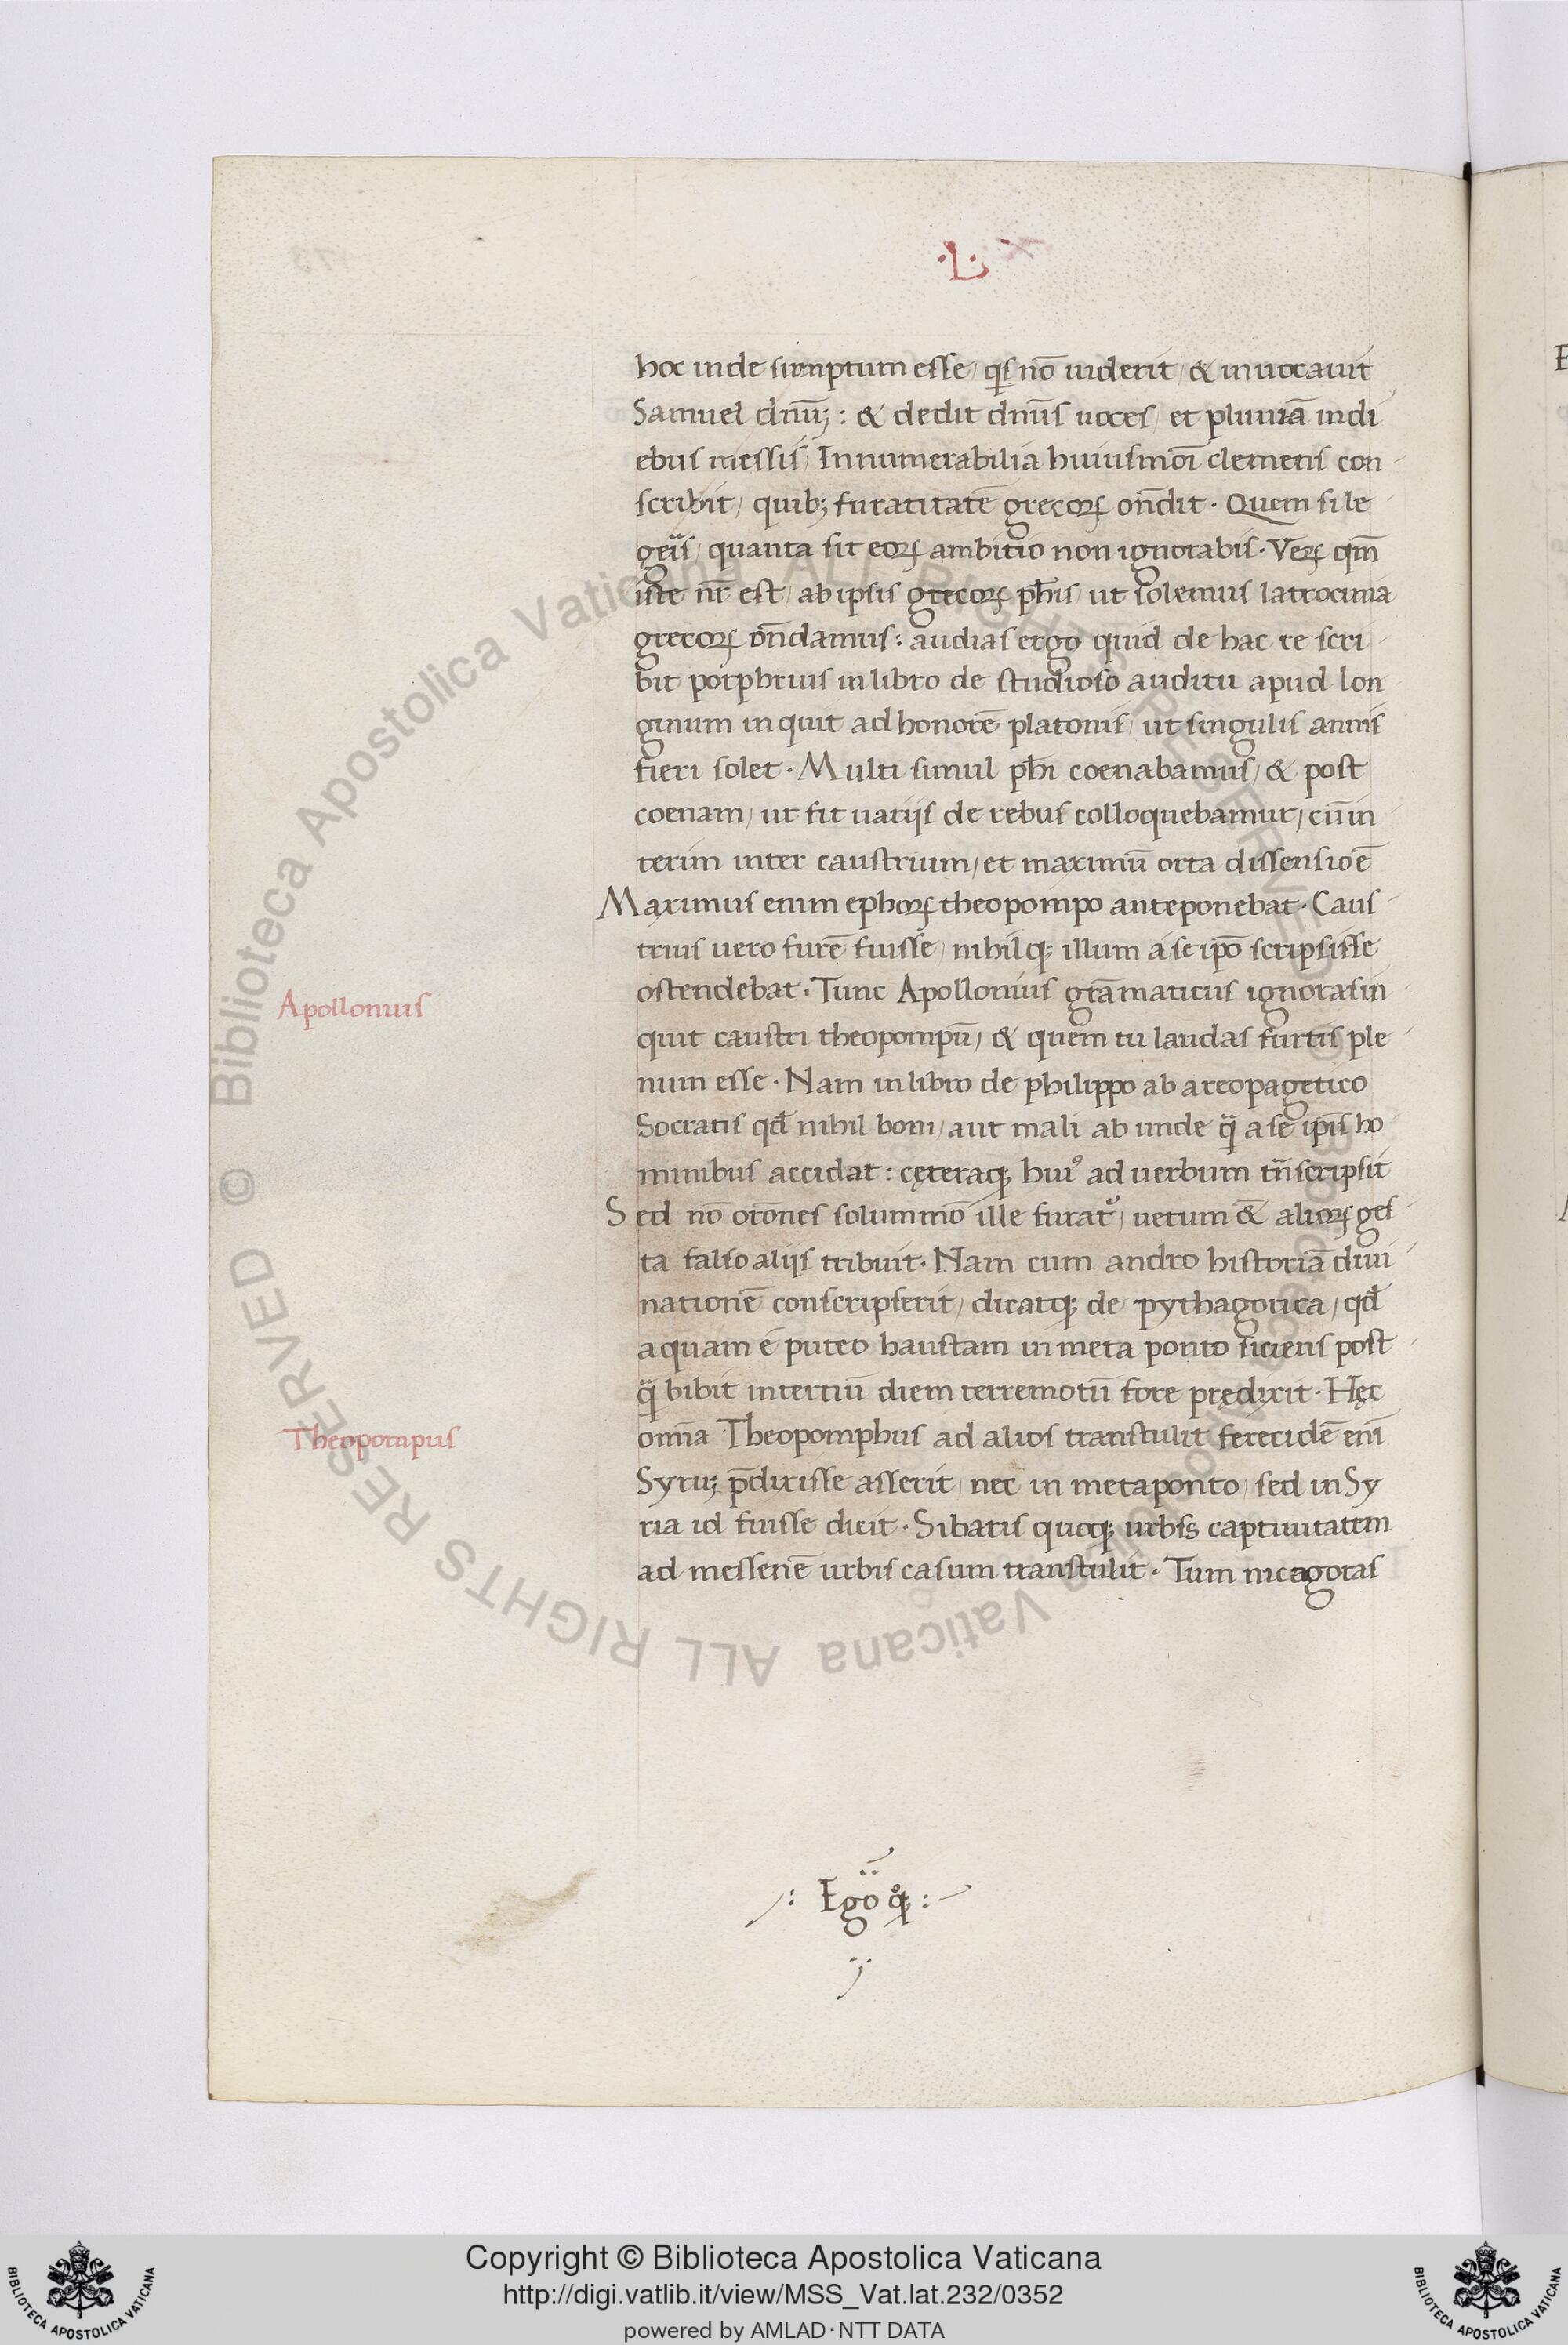 ·L·
hoc inde sumptum esse / q̄s nō uiderit / & inuocauit
Samuel dnū; : & dedit dnūs uoces / et pluuiā in di
ebus messis / Innumerabilia huiusmōi clemens con-
scribit / quib; furatitatē grecoꝝ on̄dit · Quem si le-
geīs / quanta sit eoꝝ ambitio non ignorabis · Veꝝ qm̄
iste nr̄ est / ab ipsis grecoꝝ phīs / ut solemus latrocinia
grecoꝝ on̄damus : audias ergo quid de hac re scri-
bit porphrius in libro de studioso auditu apud lon
ginum inquit ad honorē platonis / ut singulis annis
fieri solet · Multi simul phī coenabamus / & post
coenam / ut fit uarijs de rebus colloquebamur / cū in
terim inter caustrium / et maximū orta dissensio ē
Maximus enim ephoꝝ theopompo anteponebat · Caus-
trius uero furē fuisse / nihilq; illum a se ipō scripsisse
ostendebat · Tunc Apollonius grāmaticus ignoras in-
quit caustri theopompū / & quem tu laudas furtis ple-
num esse · Nam in libro de philippo ab areopagetico
Socratis qd̄ nihil boni / aut mali ab unde q̄ a se ipīs ho
minibus accidat : cęteraq; huiꝰ ad uerbum trn̄scripsit
Sed nō orōnes solummō ille furatᷣ / uerum & alioꝝ ges-
ta falso alijs tribuit · Nam cum andro historiā diui-
nationē conscripserit / dicatq; de pythagorica / qd̄
aquam e puteo haustam in meta ponto siciens post
q̄ bibit in tertiū diem terremotū fore prędixit · Hęc
omīa Theopomphus ad alios transtulit ferecidē enī
Syru; p̄dixisse asserit / nec in metaponto / sed in Sy
ria id fuisse dicit · Sibaris quoq; urbis captiuitatem
ad messenē urbis casum transtulit · Tum nicagoras
Apollonius
Theopompus
: Ego q̊ꝫ :
Copyright © Biblioteca Apostolica Vaticana
http://digi.vatlib.it/view/MSS_Vat.lat.232/0352
powered by AMLAD·NTT DATA
BIBLIOTECA APOSTOLICA VATICANA
BIBLIOTECA APOSTOLICA VATICANA
© Biblioteca Apostolica Vaticana ALL RIGHTS RESERVED © Biblioteca Apostolica Vaticana ALL RIGHTS RESERVED